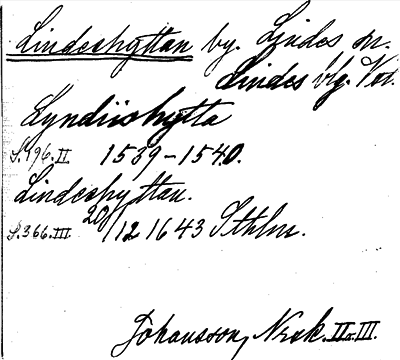 Lindeshyttan by. Lindes sn.
Lindes blg. Vstm.
Lyndiishytta
S. 196. II 1539-1540.
Lindeshyttan.
S. 366. III. 20/12 1643 Sthlm.
Johansson, Norsk. II o. III.